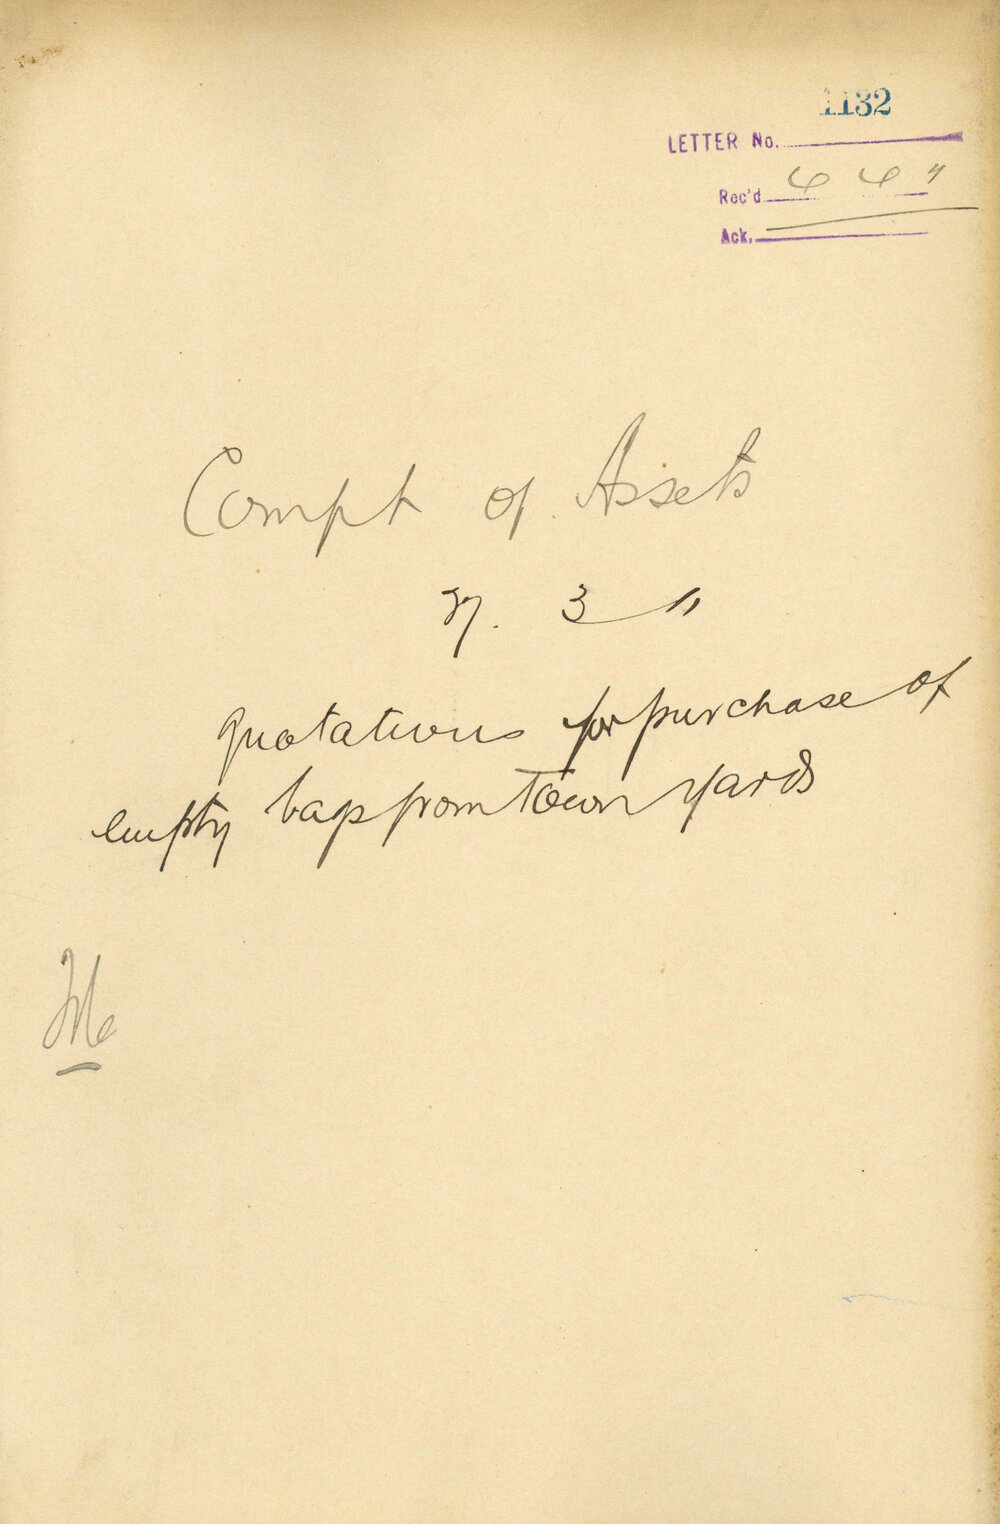 1132
LETTER No.
Rec'd 6 6 11
Ack.
Compt of Assets
27. 3 11
quotations for purchase of
empty bags from Town yards